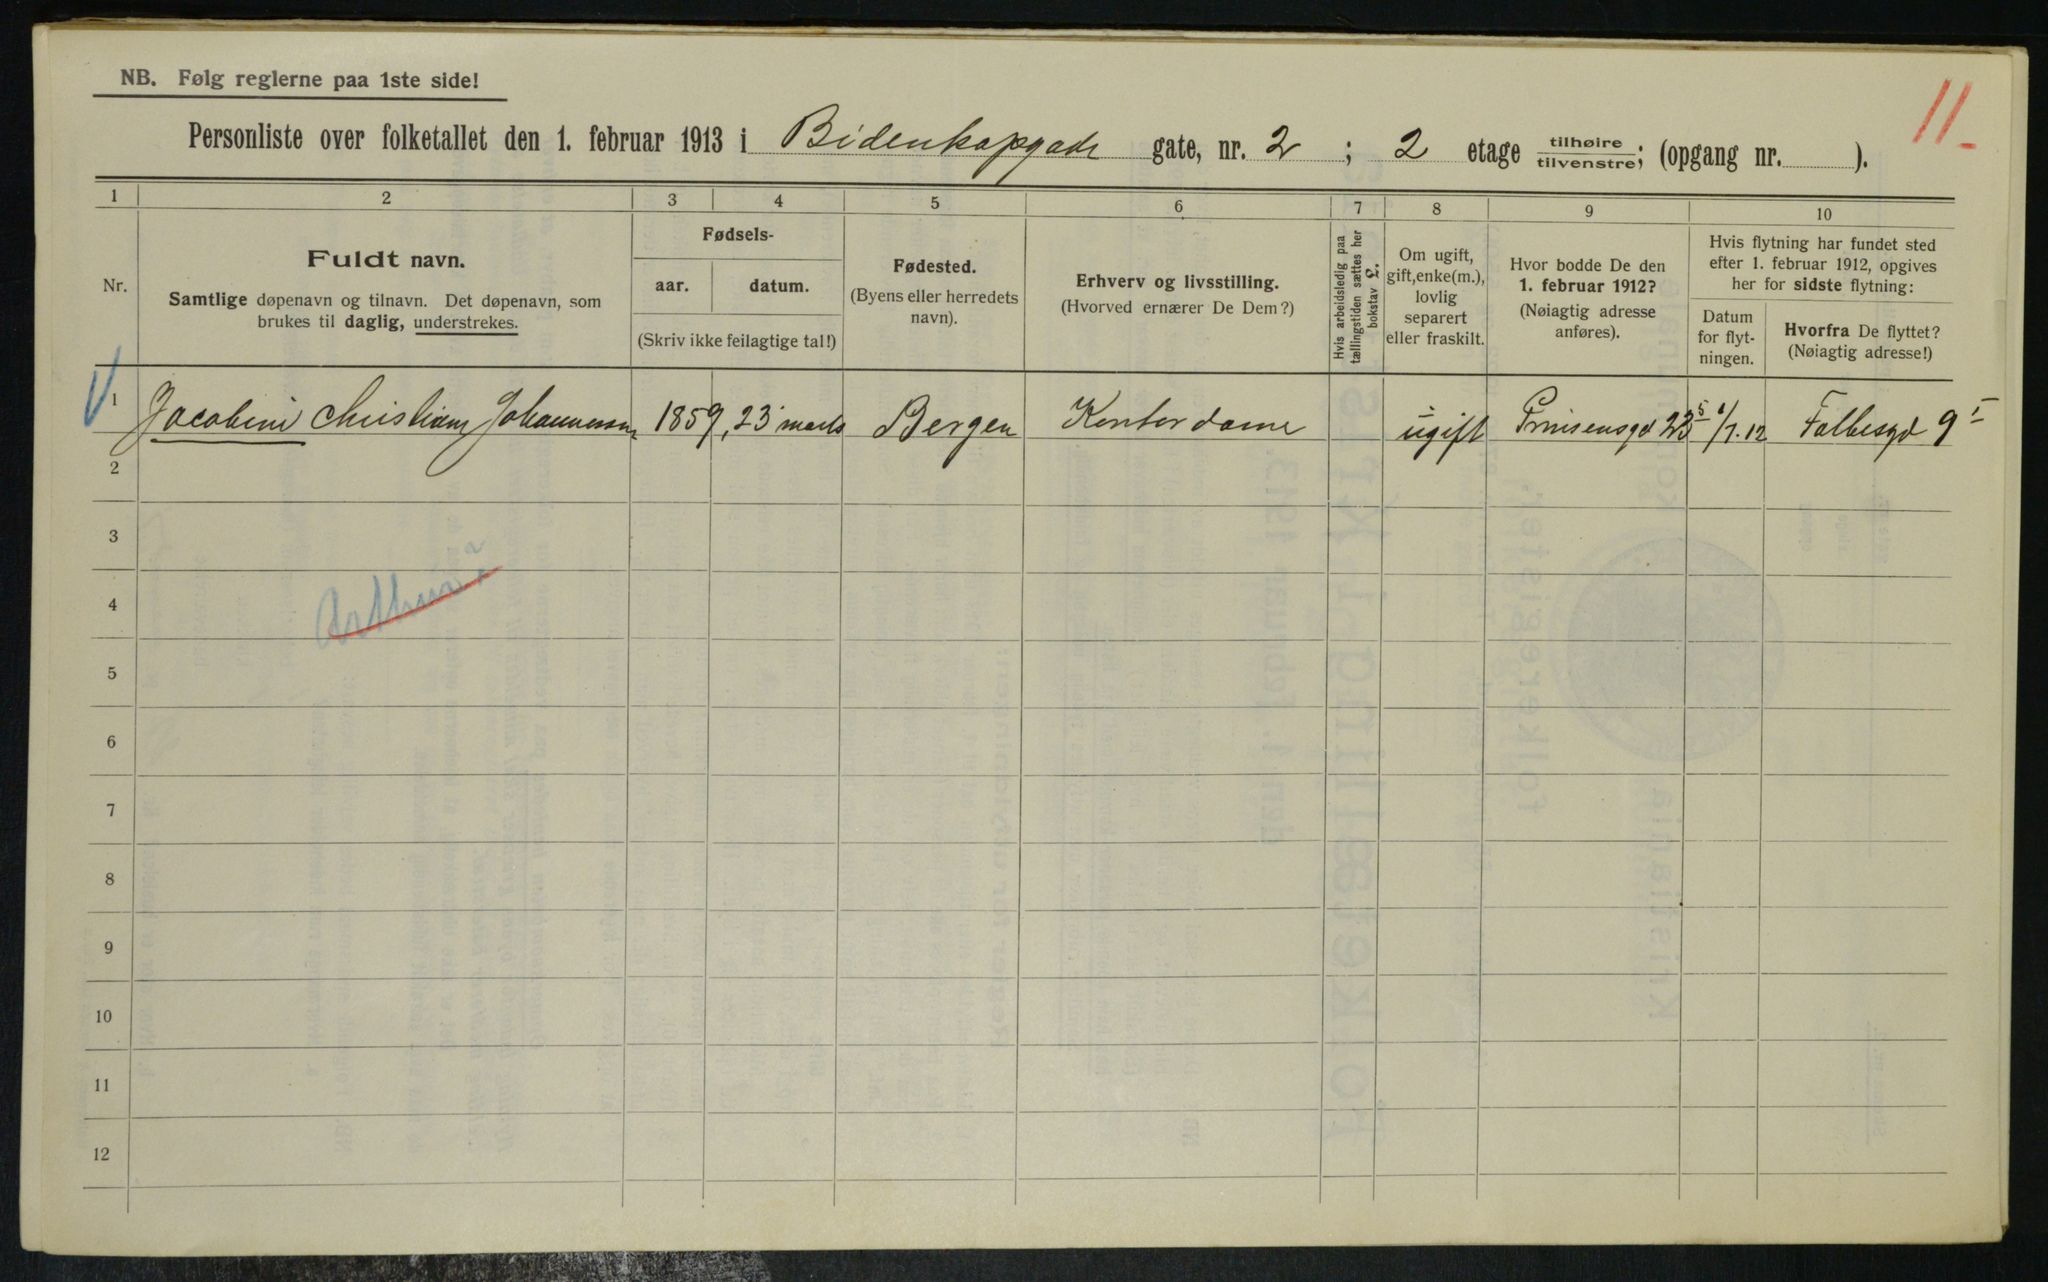 NB. Følg reglerne paa 1ste side!
11.
Personliste over folketallet den 1. februar 1913 i Bidenkapgade gate, nr. 2 ; 2 etage tilhøire/tilvenstre; (opgang nr. ).
1 2 3 4 5 6 7 8 9 10
Nr.
Fuldt navn.
Samtlige døpenavn og tilnavn. Det døpenavn, som
brukes til daglig, understrekes.
Fødsels-
aar. datum.
(Skriv ikke feilagtige tal!)
Fødested.
(Byens eller herredets
navn).
Erhverv og livsstilling.
(Hvorved ernærer De Dem?)
Hvis arbeidsledig paa
tællingstiden sættes her
bokstav L.
Om ugift,
gift, enke(m.),
lovlig
separert
eller fraskilt.
Hvor bodde De den
1. februar 1912?
(Nøiagtig adresse
anføres).
Hvis flytning har fundet sted
efter 1. februar 1912, opgives
her for sidste flytning:
Datum
for flyt-
ningen.
Hvorfra De flyttet?
(Nøiagtig adresse!)
1 Jacobine Christiane Johannessen 1859, 23 marts Bergen Kontordame ugift Prinsensgd 23 /7.12 Falbesgd 9
2
3
4
5
6
7
8
9
10
11
12